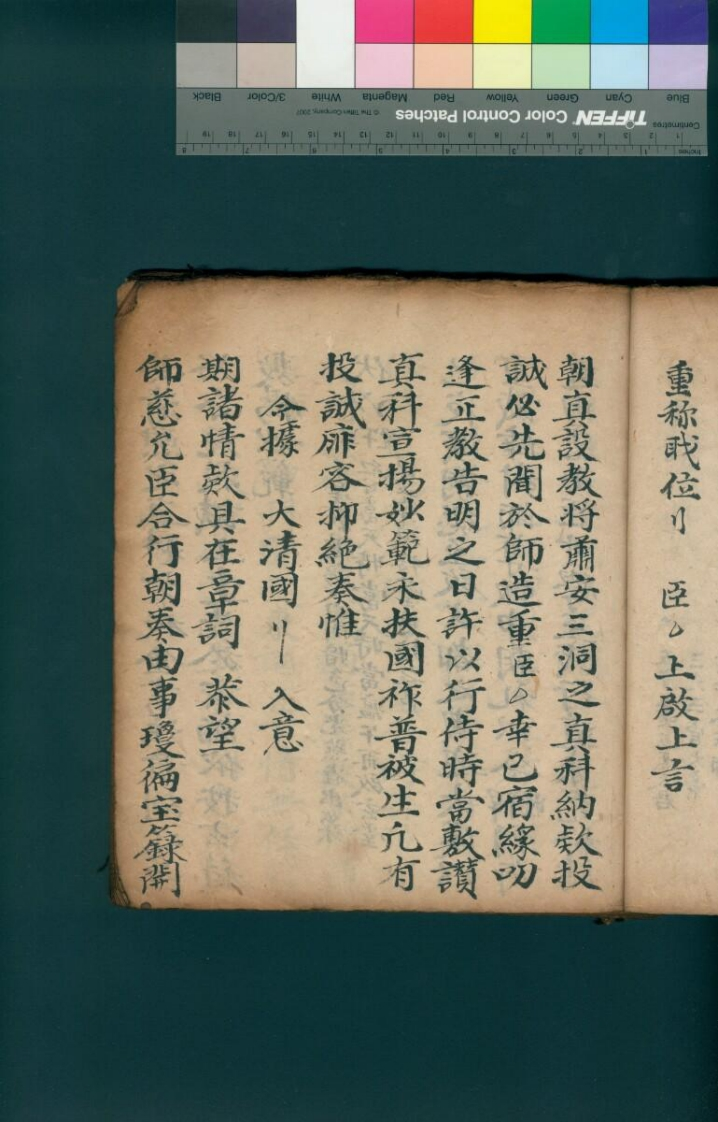 重称戝位刂 臣々上啟上言
朝真設教将肅安三洞之真科納欵投
誠必先聞於師造重臣々幸已宿緣叨
逢正教告明之日許以行侍時當敷讚
真科宣揚妙範永扶國祚普被生凢有
投誠庥容抑絶奏惟
今據 大清國刂入意
期諸情欵具在章詞 恭望
師慈允臣合行朝奏由事瓊偏宝籙開
Blue Cyan Green Yellow Red Magenta White 3/Color Black
Centimetres TIFFEN Color Control Patches © The Tiffen Company, 2007
1 2 3 4 5 6 7 8 9 10 11 12 13 14 15 16 17 18 19
Inches 1 2 3 4 5 6 7 8